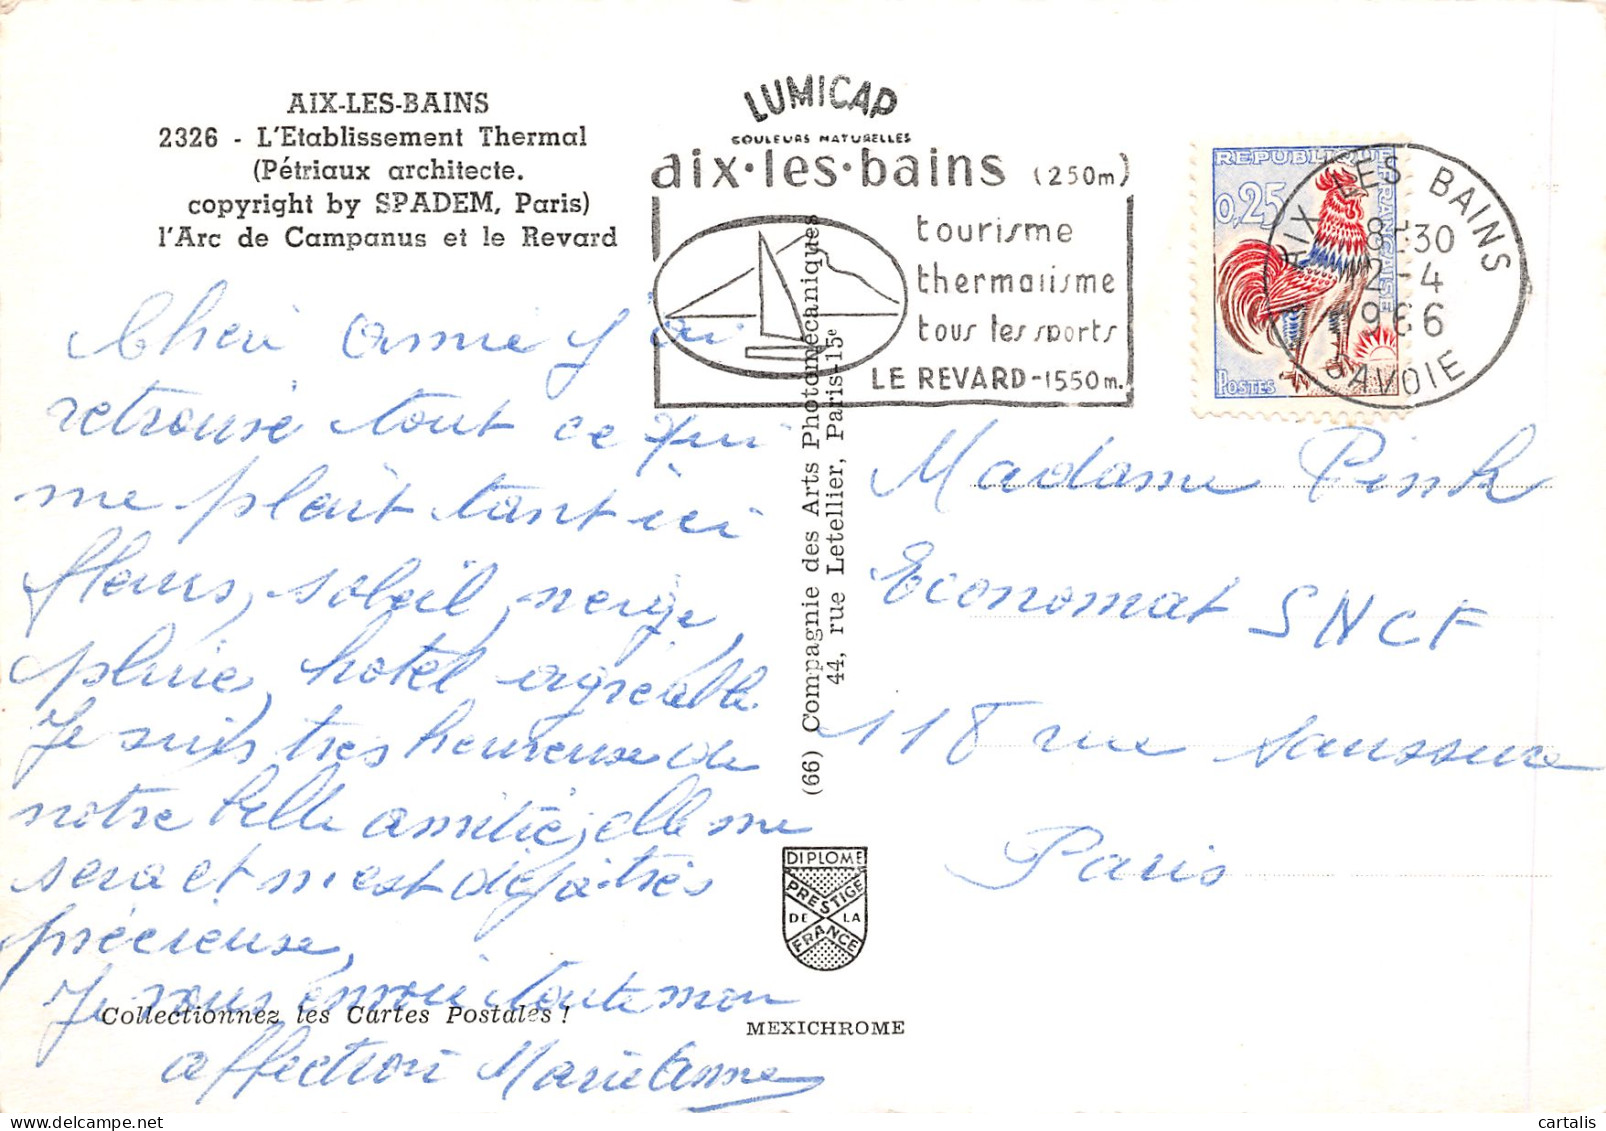 AIX-LES-BAINS
2326 - L'Etablissement Thermal
(Pétriaux architecte.
copyright by SPADEM, Paris)
l'Arc de Campanus et le Revard
Cheri amie j'ai
retrouvé tout ce qui
me plait tant ici
fleurs, soleil, neige,
pluie, hotel agréable.
Je suis très heureuse de
notre belle amitié, elle me
sera et m'est déjà très
précieuse,
Je vous envoie toute mon
affection Marie Anne
Collectionnez les Cartes Postales !
LUMICAP
COULEURS NATURELLES
aix•les•bains (250m)
tourisme
thermalisme
tous les sports
LE REVARD-1550m.
(66) Compagnie des Arts Photomécaniques
44, rue Letellier, Paris-15e
DIPLOME
PRESTIGE
DE LA
FRANCE
MEXICHROME
REPUBLIQUE FRANÇAISE
0,25
POSTES
AIX LES BAINS
8H30
12-4
1966
SAVOIE
Madame Pink
Economat SNCF
118 rue Saussure
Paris
cartalis